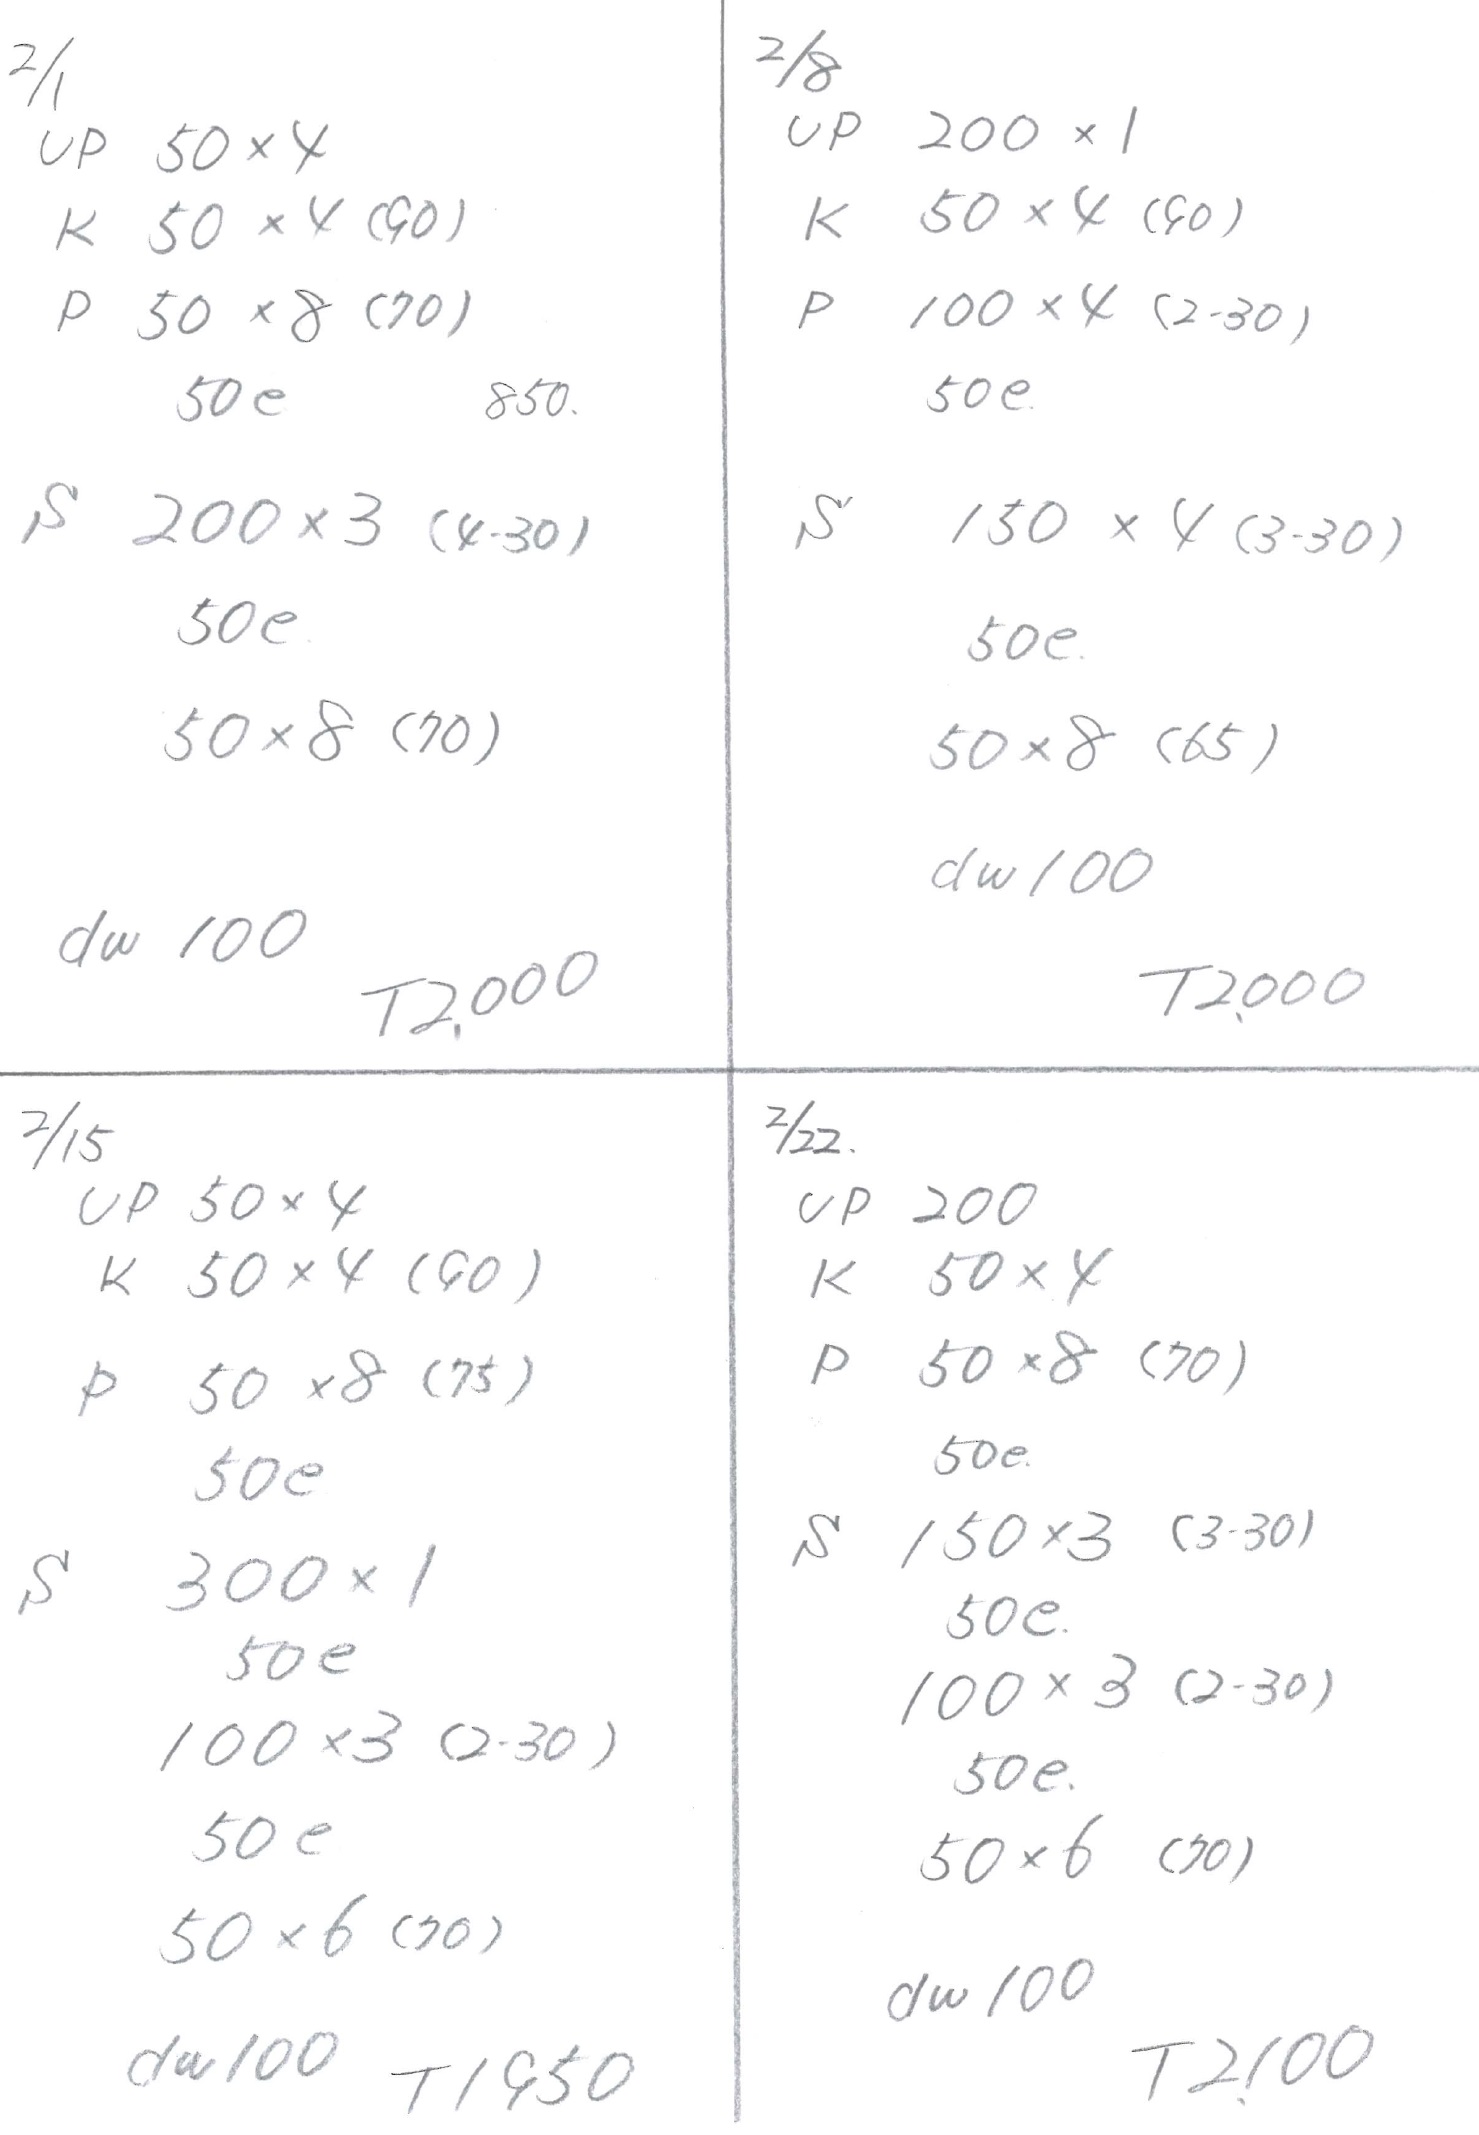 2/1
UP 50×4
K 50×4 (90)
P 50×8 (70)
50e 850.
S 200×3 (4-30)
50e.
50×8 (70)
dw 100
T2,000
2/8
UP 200×1
K 50×4 (90)
P 100×4 (2-30)
50e.
S 150×4 (3-30)
50e.
50×8 (65)
dw100
T2,000
2/15
UP 50×4
K 50×4 (90)
P 50×8 (75)
50e
S 300×1
50e
100×3 (2-30)
50e
50×6 (70)
dw100 T1950
2/22.
UP 200
K 50×4
P 50×8 (70)
50e.
S 150×3 (3-30)
50e.
100×3 (2-30)
50e.
50×6 (70)
dw100
T2,100